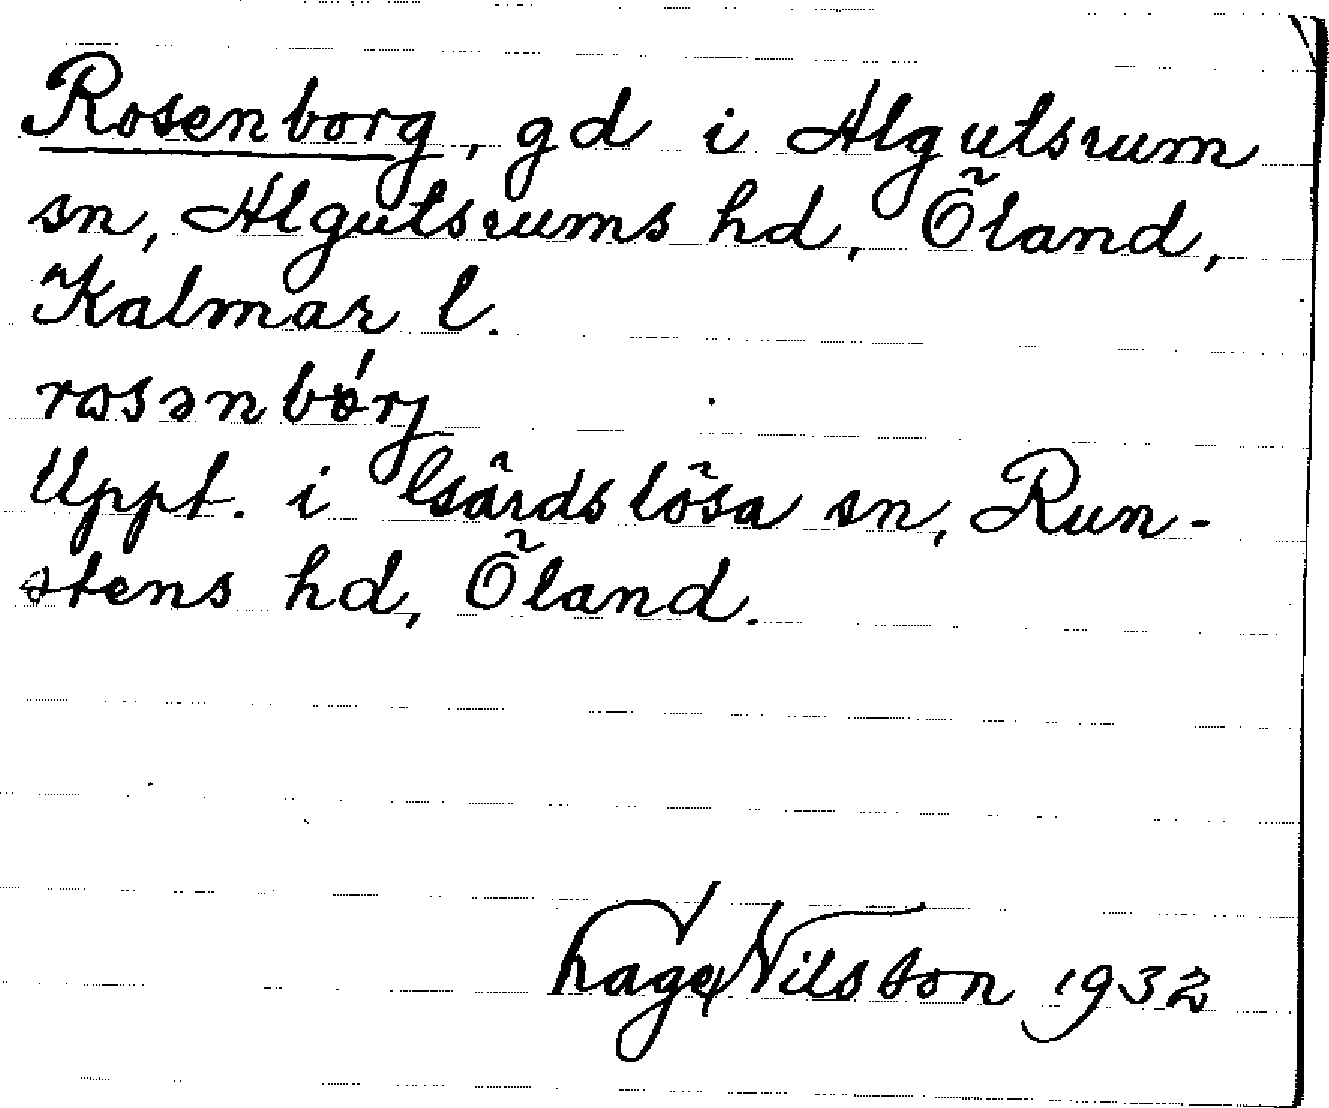 Rosenborg, gd i Algutsrum
sn, Algutsrums hd, Öland,
Kalmar l.
rosənbórj
Uppt. i Gärdslösa sn, Run-
stens hd, Öland.
Tage Nilsson 1932